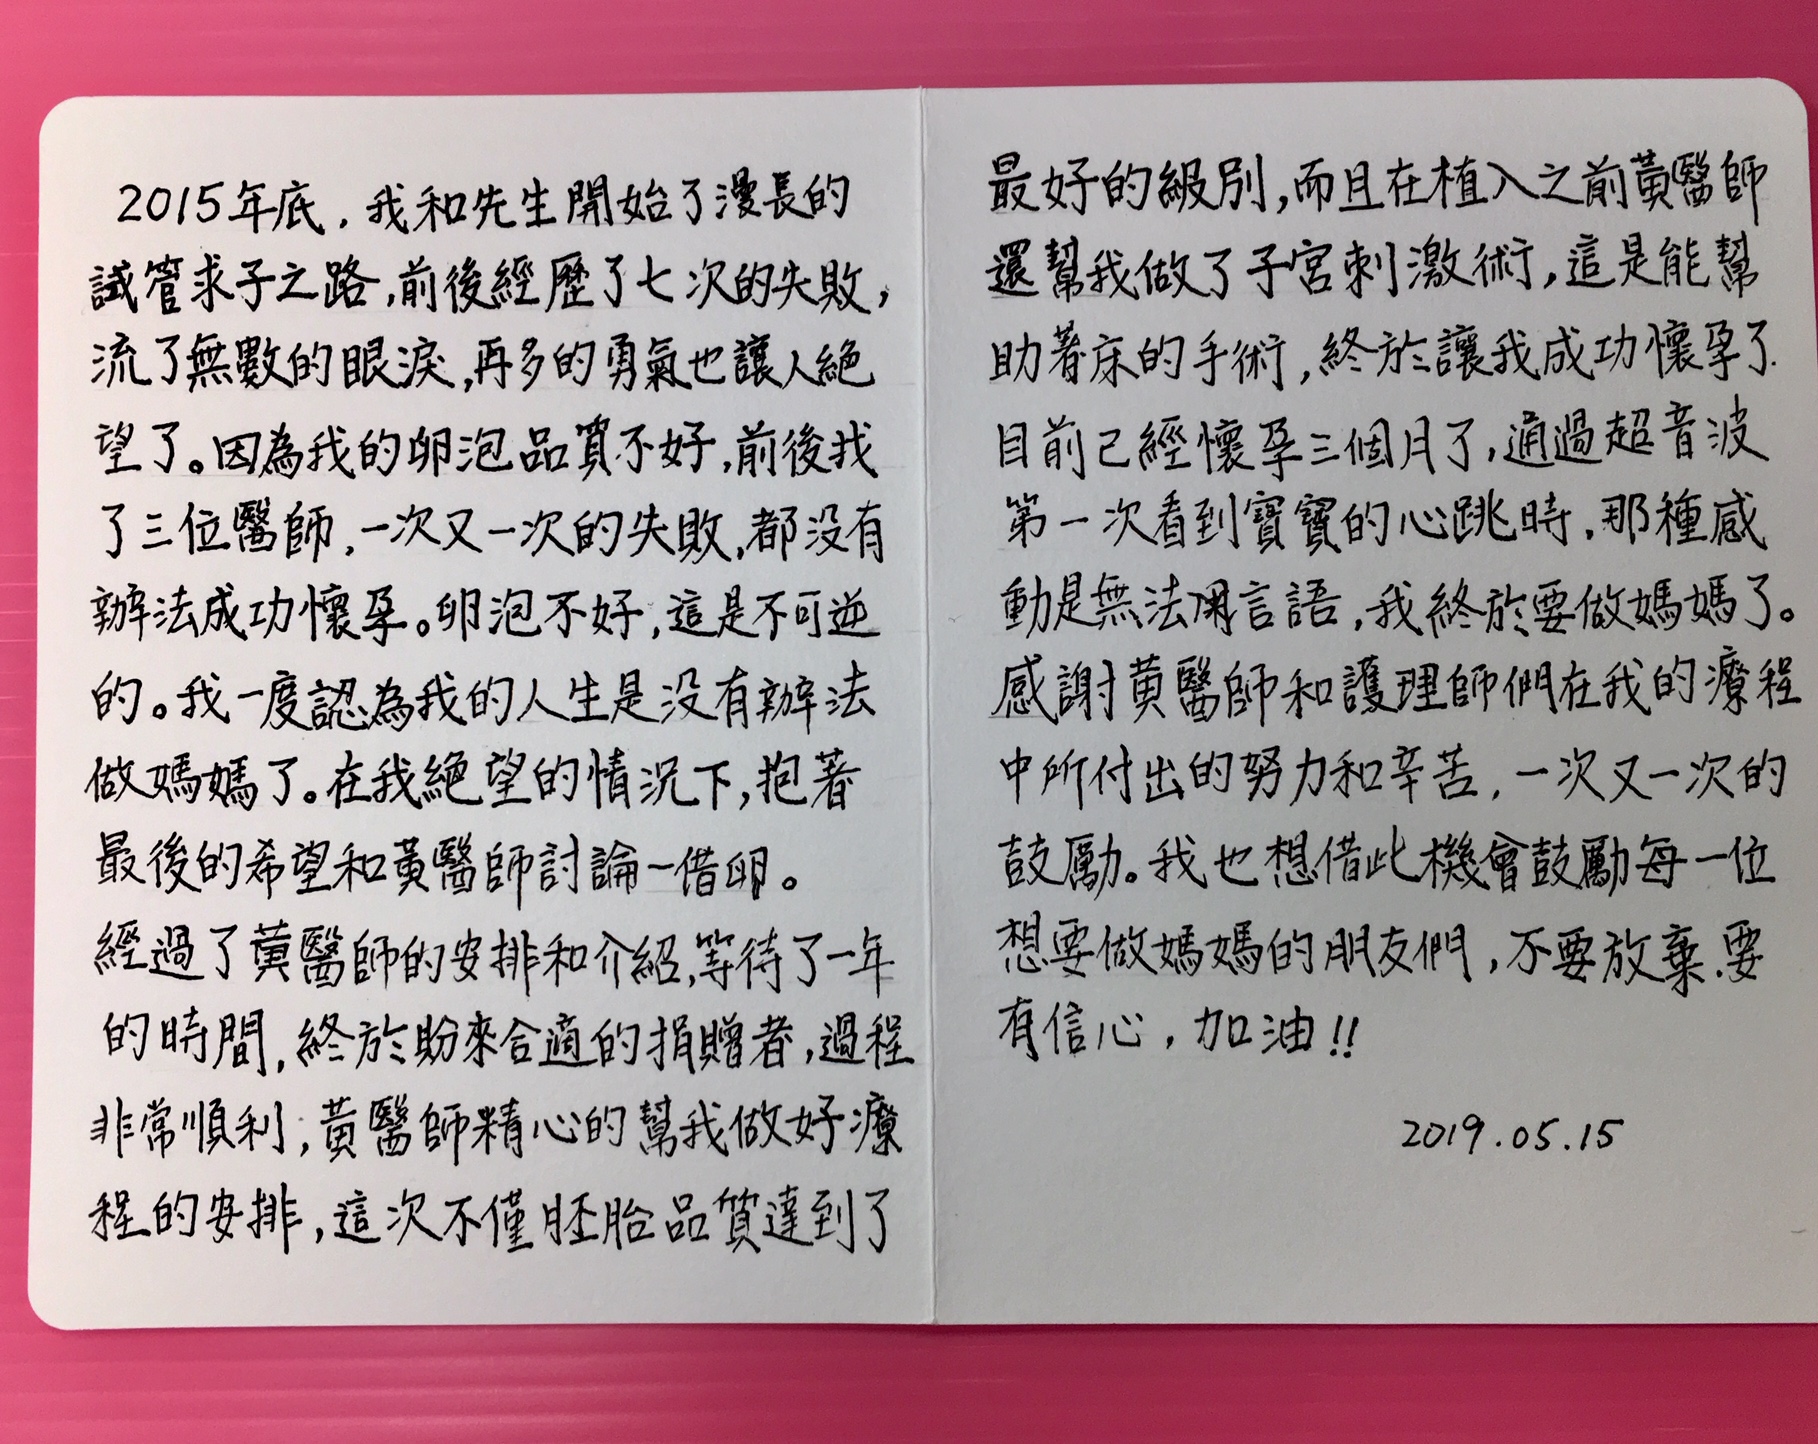 2015年底，我和先生開始了漫長的
試管求子之路，前後經歷了七次的失敗，
流了無數的眼淚，再多的勇氣也讓人絕
望了。因為我的卵泡品質不好，前後找
了三位醫師，一次又一次的失敗，都沒有
辦法成功懷孕。卵泡不好，這是不可逆
的。我一度認為我的人生是沒有辦法
做媽媽了。在我絕望的情況下，抱著
最後的希望和黃醫師討論一借卵。
經過了黃醫師的安排和介紹，等待了一年
的時間，終於盼來合適的捐贈者，過程
非常順利，黃醫師精心的幫我做好療
程的安排，這次不僅胚胎品質達到了
最好的級別，而且在植入之前黃醫師
還幫我做了子宮刺激術，這是能幫
助著床的手術，終於讓我成功懷孕了.
目前已經懷孕三個月了，通過超音波
第一次看到寶寶的心跳時，那種感
動是無法用言語，我終於要做媽媽了。
感謝黃醫師和護理師們在我的療程
中所付出的努力和辛苦，一次又一次的
鼓勵。我也想借此機會鼓勵每一位
想要做媽媽的朋友們，不要放棄.要
有信心，加油!!
2019.05.15